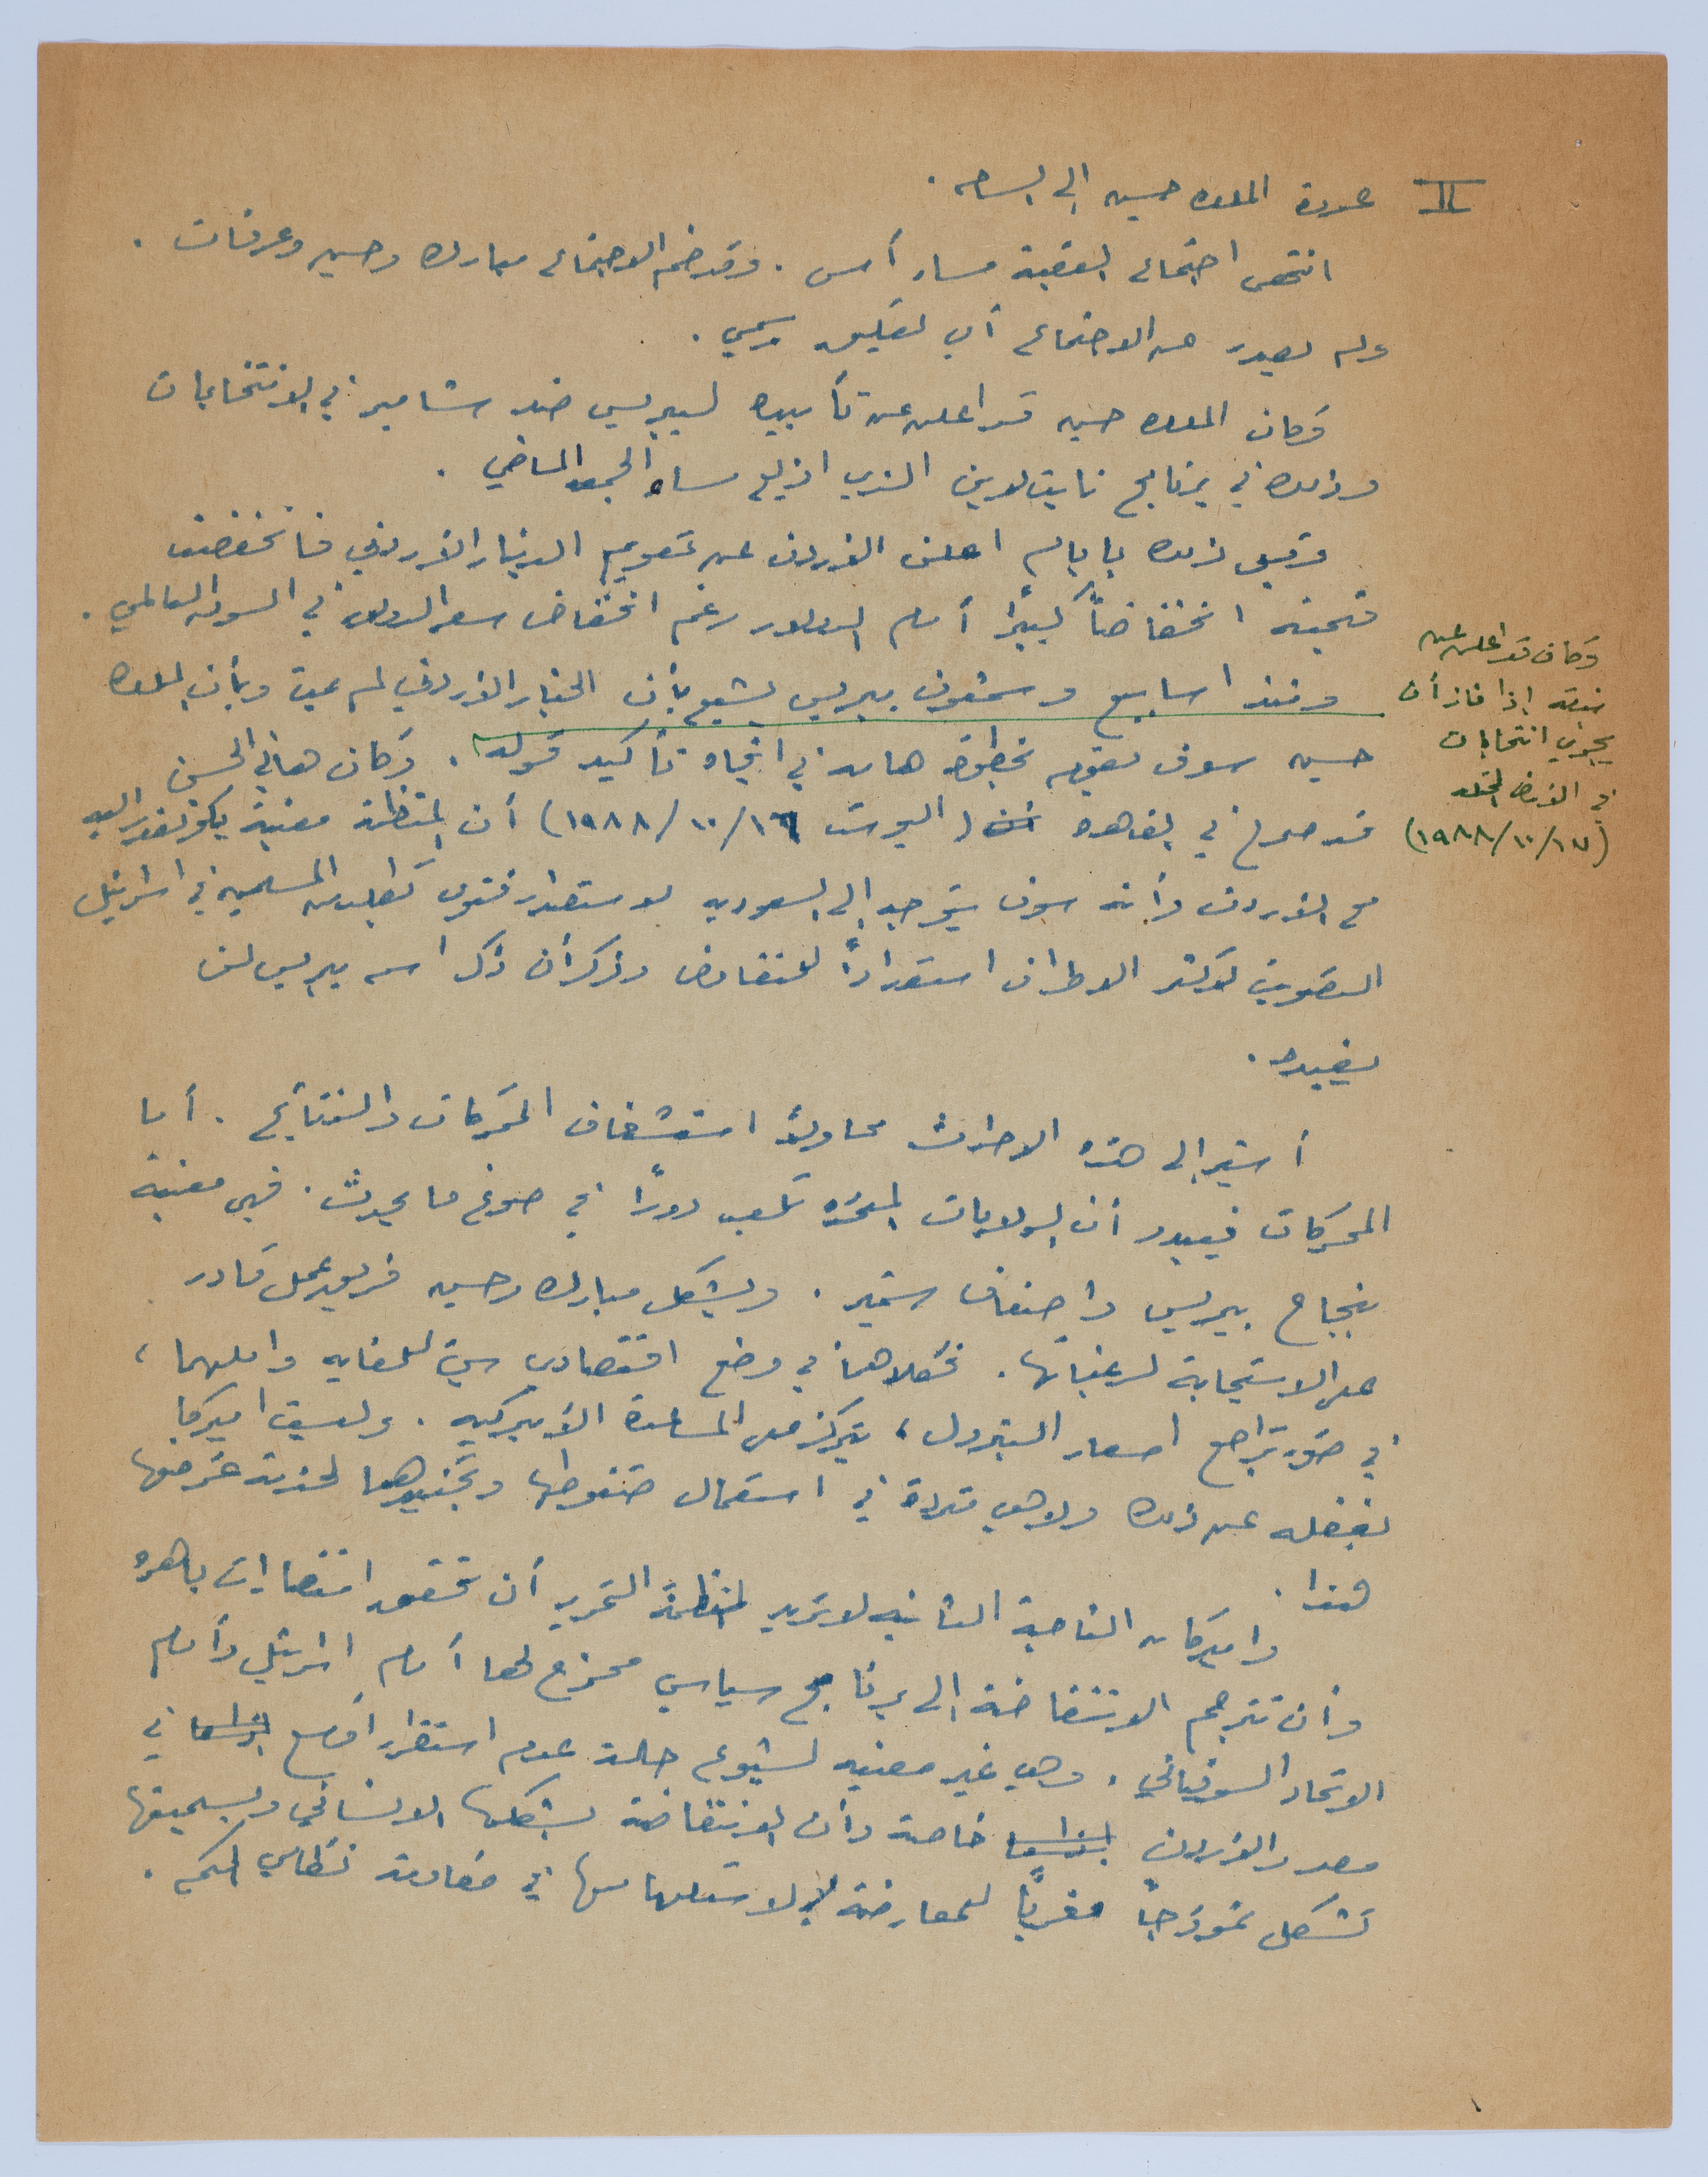 II عودة الملك حسين إلى الساحة .
انتهى اجتماع العقبة مساء أمس . وقد ضم الاجتماع مبارك وحسين وعرفات .
ولم يصدر عن الاجتماع أي تعليق رسمي .
وكان الملك حسين قد اعلن عن تأييده لبيريس ضد شامير في الانتخابات
وذلك في برنامج نايت لاين الذي اذيع مساء الجمعة الماضي .
وقبل ذلك بايام اعلن الأردن عن تعويم الدينار الأردني فانخفضت
قيمته انخفاضاً كبيرًا أمام الدولار رغم انخفاض سعر الدولار في السوق العالمي .
ومنذ اسابيع وشمعون بيريس يشيع بأن الخيار الأردني لم يمت وبأن الملك
حسين سوف يقوم بخطوة هامة في اتجاه تأكيد قوله . وكان هاني الحسن
قد صرح في القاهرة (البوست ١٦/١٠/١٩٨٨) أن المنظمة معنية بكونفدرالية
مع الأردن وأنه سوف يتوجه إلى السعودية لاستصدار فتوى تطلب من المسلمين في اسرائيل
التصويت لأكثر الاطراف استعدادًا للتفاوض وذكر أن ذكر اسم بيريس لن
يفيده .
وكان قد اعلن عن
نيته إذا فاز أن
يجري انتخابات
في الأرض المحتلة
(١٧/١٠/١٩٨٨)
أشير إلى هذه الاحداث محاولاً استشفاف المحركات والنتائج . أما
المحركات فيبدو أن الولايات المتحدة تلعب دورًا في صوغ ما يحدث . فهي معنية
بنجاح بيريس واضعاف شمير . ويشكل مبارك وحسين فريق عمل قادر
على الاستجابة لرغباتها . فكلاهما في وضع اقتصادي سيئ للغاية واملهما ،
في ضوء تراجع اسعار البترول ، يتركز على المساعدة الأميركية . وليست اميركا
بغفلة عن ذلك ولا هي مترددة في استعمال ضغوطها وتجنيدهما لخدمة غرضها
هذا .
واميركا من الناحية الثانية لا تريد لمنظمة التحرير أن تحقق انتصارات باهرة
وأن تترجم الانتفاضة إلى برنامج سياسي محرج لها أمام اسرائيل وأمام
الاتحاد السوفياتي . وهي غير معنية لشيوع حالة عدم استقرار أوسع في
مصر والأردن خاصة وأن الانتفاضة بشكلها الانساني وبسميتها
تشكل نموذجًا مغريًا للمعارضة لاستلهامها في مقاومة نظامي الحكم .